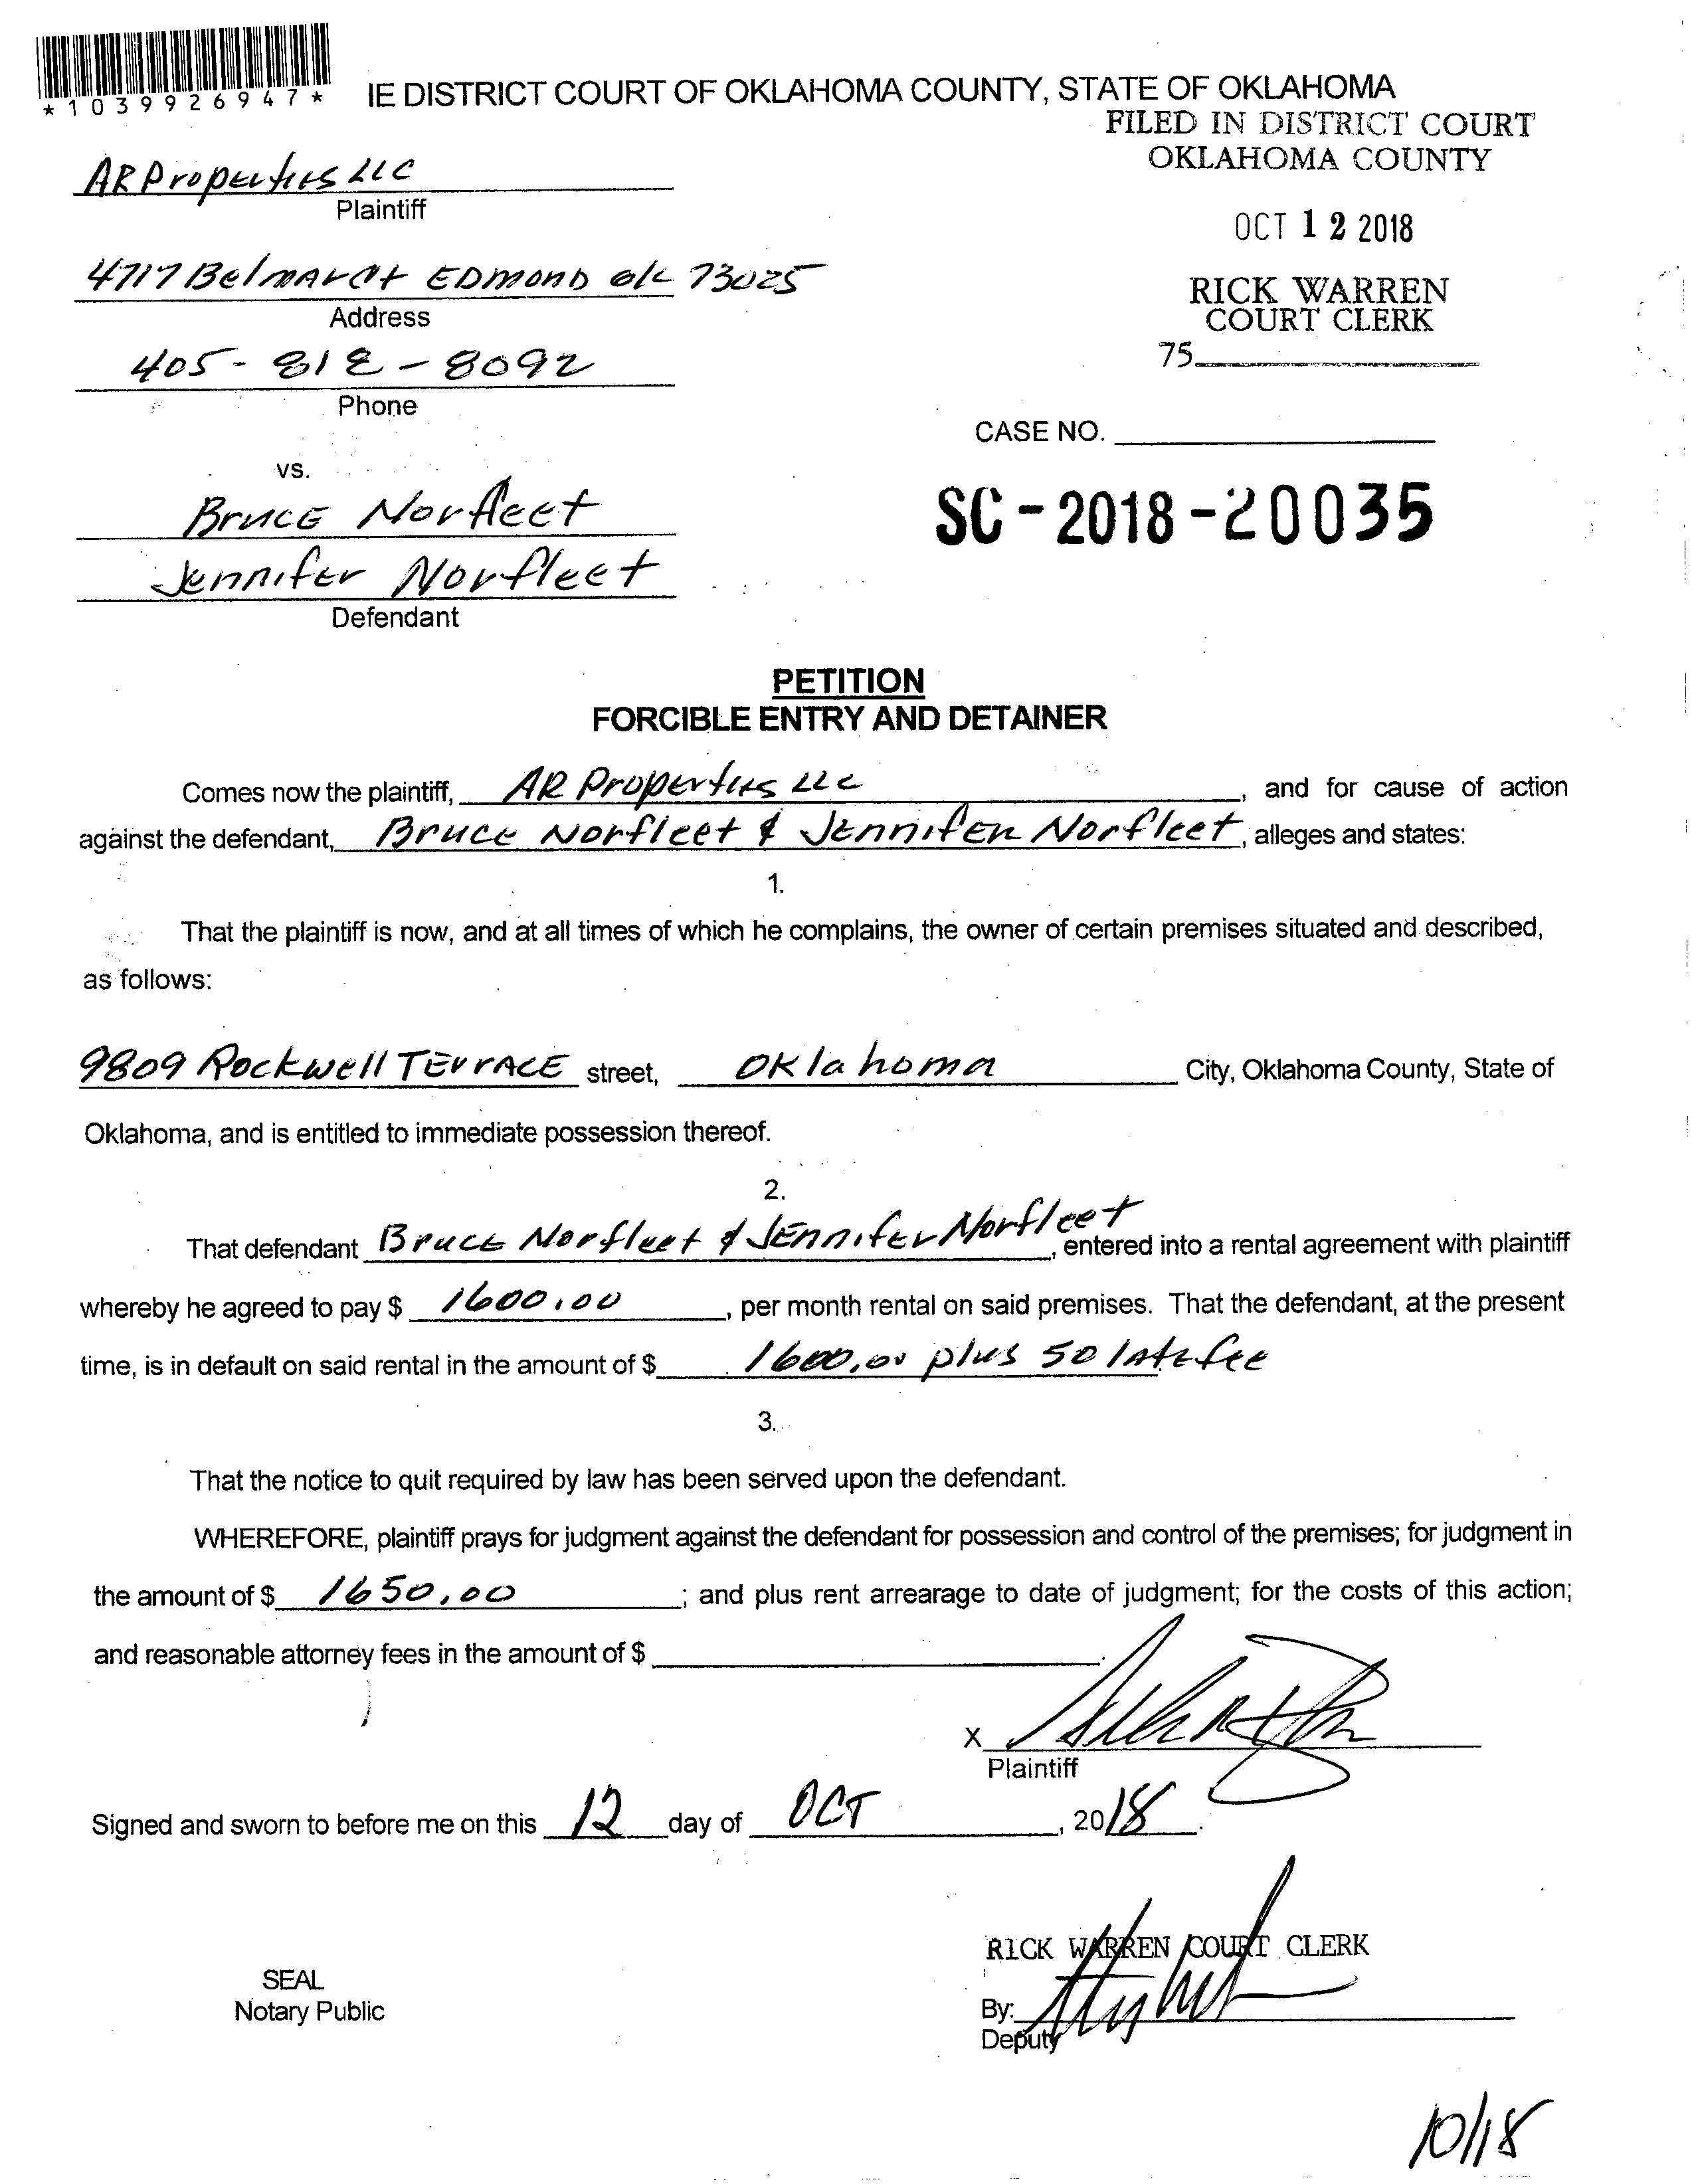 *1039926947*
IE DISTRICT COURT OF OKLAHOMA COUNTY, STATE OF OKLAHOMA
FILED IN DISTRICT COURT
OKLAHOMA COUNTY
AR Properties LLC
Plaintiff
OCT 12 2018
4717 Belmar Ct EDMOND OK 73025
Address
RICK WARREN
COURT CLERK
75
405-812-8092
Phone
CASE NO.
vs.
SC-2018-20035
Bruce Norfleet
Jennifer Norfleet
Defendant
PETITION
FORCIBLE ENTRY AND DETAINER
Comes now the plaintiff, AR Properties LLC, and for cause of action
against the defendant, Bruce Norfleet & Jennifer Norfleet, alleges and states:
1.
That the plaintiff is now, and at all times of which he complains, the owner of certain premises situated and described,
as follows:
9809 Rockwell Terrace street, Oklahoma City, Oklahoma County, State of
Oklahoma, and is entitled to immediate possession thereof.
2.
That defendant Bruce Norfleet & Jennifer Norfleet, entered into a rental agreement with plaintiff
whereby he agreed to pay $ 1600.00, per month rental on said premises. That the defendant, at the present
time, is in default on said rental in the amount of $ 1600.00 plus 50 late fee
3.
That the notice to quit required by law has been served upon the defendant.
WHEREFORE, plaintiff prays for judgment against the defendant for possession and control of the premises; for judgment in
the amount of $ 1650.00; and plus rent arrearage to date of judgment; for the costs of this action;
and reasonable attorney fees in the amount of $ .
X
Plaintiff
Signed and sworn to before me on this 12 day of OCT, 2018.
RICK WARREN COURT CLERK
SEAL
Notary Public
By:
Deputy
10/18